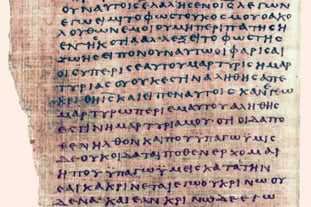 ΟΥΝΑΥΤΟΙΣΕΛΑΛΗΣΕΝΟΙΣΛΕΓΩΝ
ΕΓΩΕΙΜΙΤΟΦΩΣΤΟΥΚΟΣΜΟΥΟΑΚΟ
ΛΟΥΘΩΝΕΜΟΙΟΥΜΗΠΕΡΙΠΑΤΗΣΗ
ΕΝΤΗΣΚΟΤΙΑΑΛΛΕΞΕΙΤΟΦΩΣΤΗΣ
ΖΩΗΣΕΙΠΟΝΟΥΝΑΥΤΩΟΙΦΑΡΙΣΑΙ
ΟΙΣΥΠΕΡΙΣΕΑΥΤΟΥΜΑΡΤΥΡΕΙΣΗΜΑΡ
ΤΥΡΙΑΣΟΥΟΥΚΕΣΤΙΝΑΛΗΘΗΣΑΠΕ
ΚΡΙΘΗΙΣΚΑΙΕΙΠΕΝΑΥΤΟΙΣΚΑΝΕΓΩ
ΜΑΡΤΥΡΩΠΕΡΙΕΜΑΥΤΟΥΑΛΗΘΗΣ
ΕΣΤΙΝΗΜΑΡΤΥΡΙΑΜΟΥΟΤΙΟΙΔΑΠΟ
ΘΕΝΗΛΘΟΝΚΑΙΠΟΥΥΠΑΓΩΥΜΙΣ
ΔΕΟΥΚΟΙΔΑΤΑΙΠΟΘΕΝΕΡΧΟΜΑΙ
ΗΠΟΥΥΠΑΓΩΥΜΕΙΣΚΑΤΑΤΗΝ
ΚΑΚΡΙΝΕΤΑΙΕΓΩΟΥΚΡΙΝΩΟΥ
ΔΕΝΑΚΑΙΕΑΝΚΡΙΝΩΔΕΕΓΩ